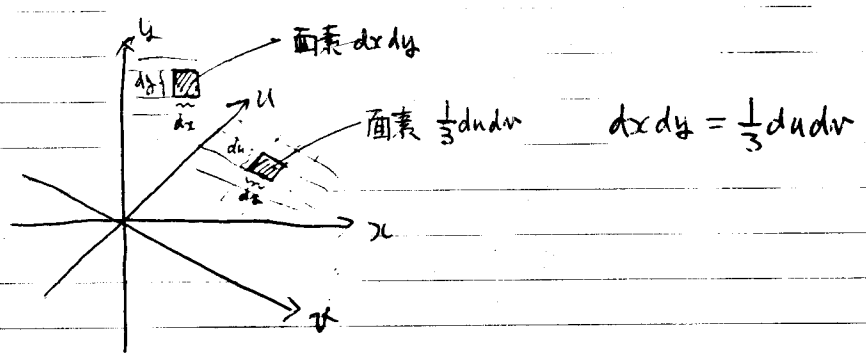 y
面素 dxdy
dy{
dx
u
面素 1/3 dudv
dxdy = 1/3 dudv
du
x
v